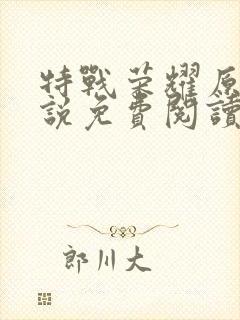 特戰荣耀原
説免費閱讀
郎川大